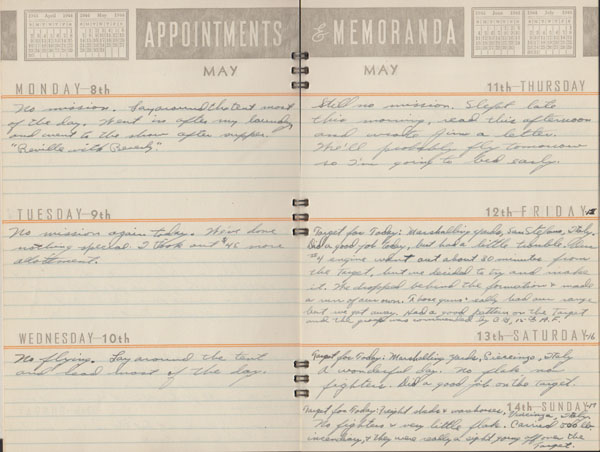 1944 April 1944
1944 May 1944
APPOINTMENTS
MAY
MONDAY—8th
No mission. Lay around the tent most
of the day. Went in after my laundry
and went to the show after supper.
"Reveille with Beverly."
TUESDAY—9th
No mission again today. We've done
nothing special I took out $45 more
allottment.
WEDNESDAY—10th
No flying. Lay around the tent
and read most of the day.
& MEMORANDA
1944 June 1944
1944 July 1944
MAY
11th—THURSDAY
Still no mission. Slept late
this morning, read this afternoon
and wrote Jim a letter.
We'll probably fly tomorrow
so I'm going to bed early.
12th—FRIDAY 15
Target for Today: Marshalling Yards, San Stefano, Italy.
Did a good job today, but had a little trouble. Our
#4 engine went out about 30 minutes from
the Target, but we decided to try and make
it. We dropped behind the formation & made
a run of our own. Those guns really had our range
but we got away. Had a good pattern on the Target
and the group was commended by
13th—SATURDAY 16
Target for Today: Marshalling Yards, Piacenza, Italy
A wonderful day. No flak nor
fighters. Did a good job on the Target.
14th—SUNDAY 17
Target for Today: Freight docks & warehouses, Piacenza, Italy.
No fighters & very little flak. Carried
incendiary, & they were really a sight going off over the
Target.